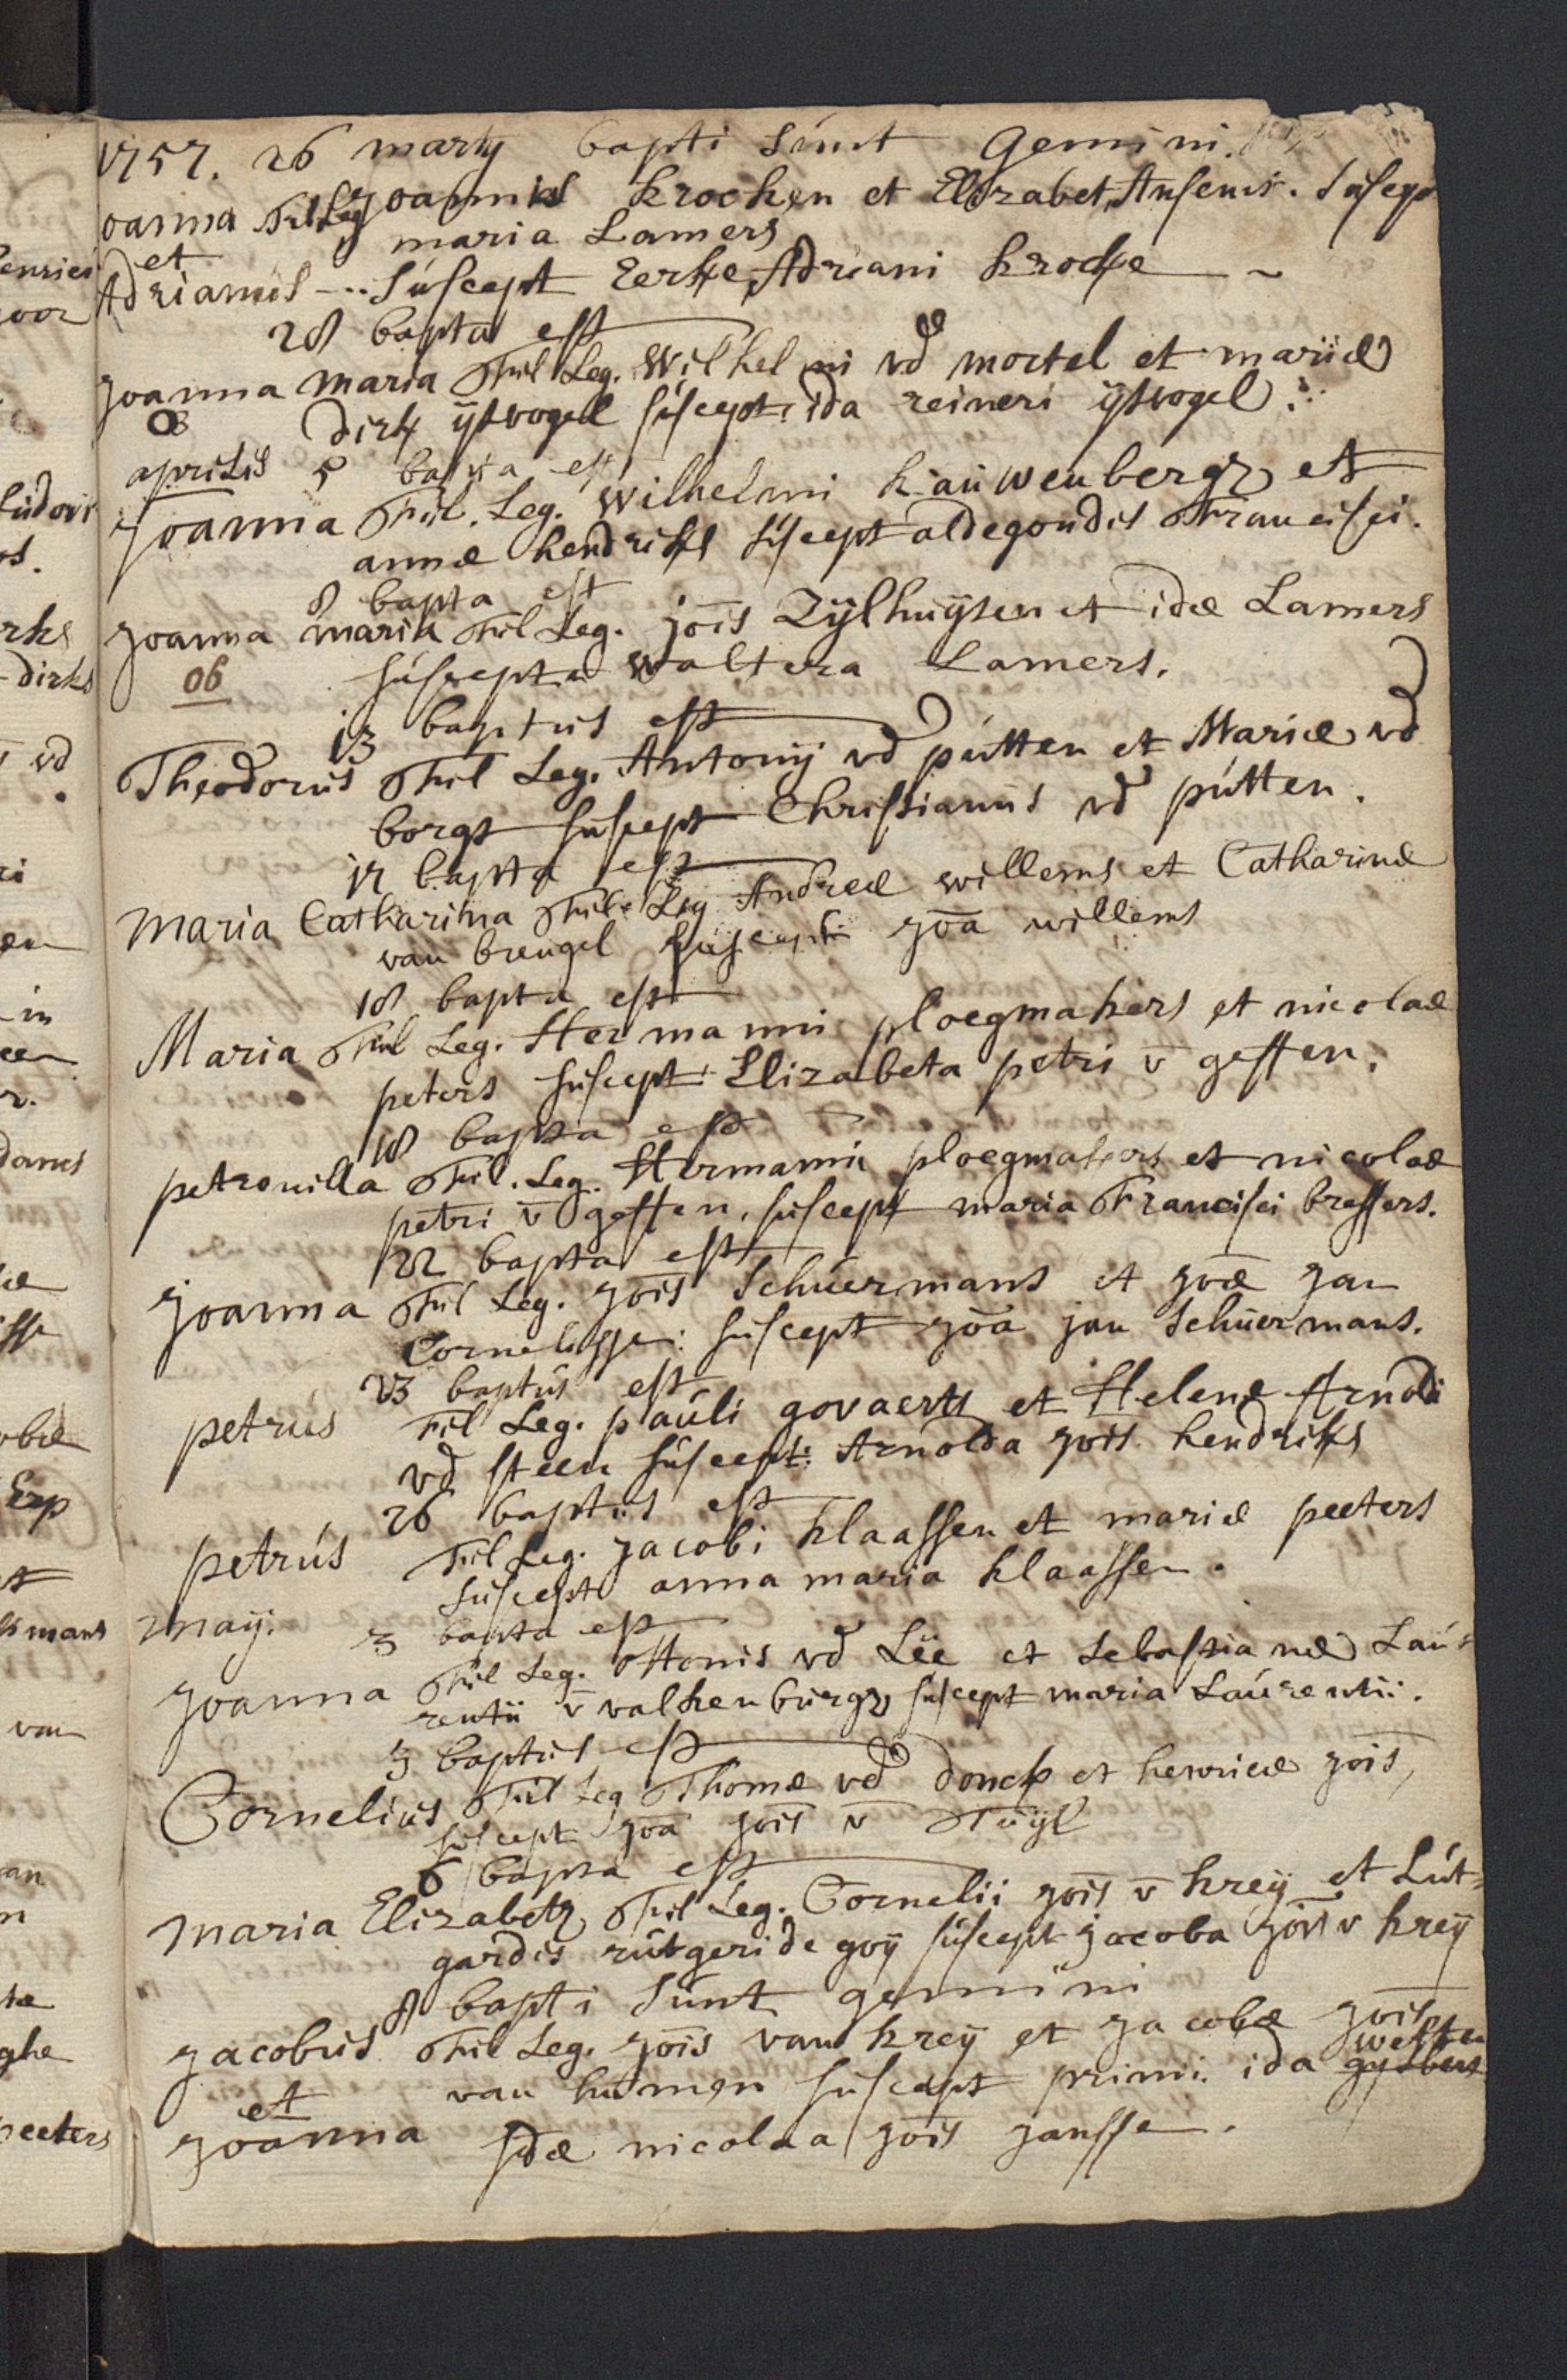 1757. 26 martij bapti sunt Gemini.
Joanna Fil Leg Joannis Krocken et Elizabet Ansems. suscep
et maria Lamers
Adrianus -- suscept Eerke Adriani Krocke
28 bapta est
Joanna maria Fil Leg. Wilhelmi vd mortel et mariæ
ob dirk ijsvogel suscept. ida reineri ijsvogel.
aprilis 5 bapta est
Joanna Fil. Leg. Wilhelmi kauwenbergh et
annæ hendriks suscept aldegondis Francisci.
8 bapta est
Joanna maria Fil Leg. jois Zijlhuijsen et idæ Lamers
ob suscepta waltera Lamers.
13 baptus est
Theodorus Fil Leg. Antonij vd putten et Mariæ vd
borgt suscept Christianus vd putten.
17 bapta est
Maria Catharina Fil. Leg Andreæ willems et Catharinæ
van breugel suscept joa willems
18 bapta est
Maria Fil Leg. Hermanni ploegmakers et nicolaæ
peters suscept Elizabeta petri v geffen.
18 bapta est
petronilla Fil. Leg. Hermanni ploegmakers et nicolaæ
petri v geffen, suscept maria Francisci bressers.
22 bapta est
Joanna Fil Leg. jois Schuermans et joæ jan
Cornelisse: suscept joa jan Schuermans.
23 baptus est
petrus Fil Leg. pauli govaerts et Helenæ Arnoldi
vd steen suscept: Arnolda jois hendriks
26 baptus est
petrus Fil Leg. jacobi klaassen et mariæ peeters
suscept anna maria klaassen.
maij. 3 bapta est
Joanna Fil Leg. Ottonis vd Lee et Sebastianæ Lau-
rentii v valkenburgh, suscept maria Laurentii.
3 baptus est
Cornelius Fil Leg Thomæ vd donck et henricæ jois,
suscept joa jois v Tuijl
6 bapta est
Maria Elizabeth, Fil Leg. Cornelii jois v kreij et Lut-
gardis rutgeri de goij suscept jacoba jois v kreij
8 bapti sunt gemini
Jacobus Fil Leg. jois van kreij et jacobæ jois
van humen suscept primi. ida gijsbers
et
Joanna 2dæ nicolaa jois jansse.